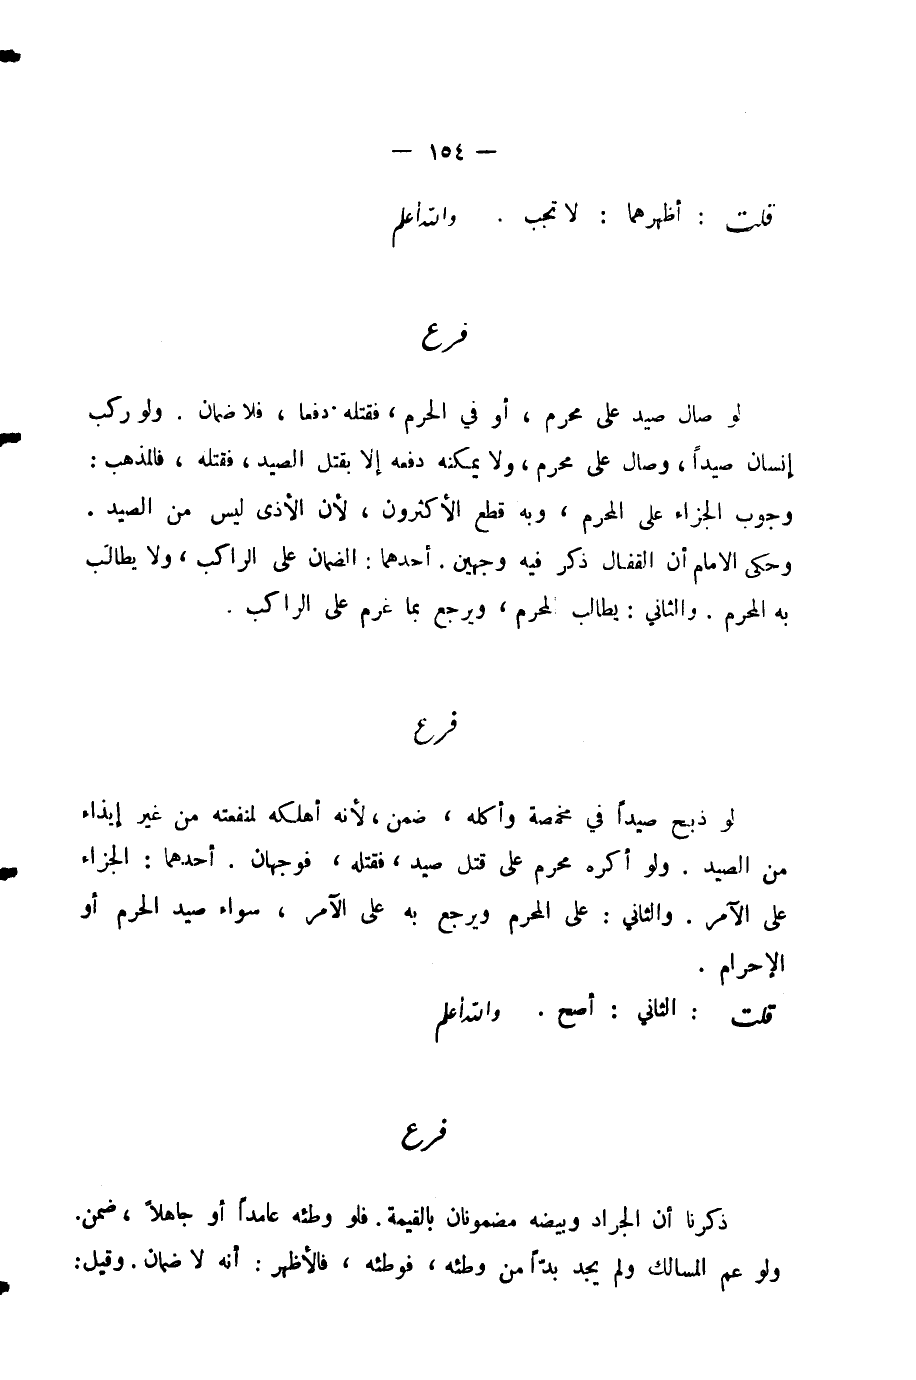 — ١٥٤ —
قلت : أظهرهما : لا تجب . والله أعلم
فرع
لو صال صيد على محرم ، أو في الحرم ، فقتله دفعا ، فلا ضمان . ولو ركب
إنسان صيداً ، وصال على محرم ، ولا يمكنه دفعه إلا بقتل الصيد ، فقتله ، فالمذهب :
وجوب الجزاء على المحرم ، وبه قطع الأكثرون ، لأن الأذى ليس من الصيد .
وحكى الامام أن القفال ذكر فيه وجهين . أحدهما : الضمان على الراكب ، ولا يطالَب
به المحرم . والثاني : يطالب المحرم ، ويرجع بما غرم على الراكب .
فرع
لو ذبح صيداً في مخمصة وأكله ، ضمن ، لأنه أهلكه لمنفعته من غير إيذاء
من الصيد . ولو أكره محرم على قتل صيد ، فقتله ، فوجهان . أحدهما : الجزاء
على الآمر . والثاني : على المحرم ويرجع به على الآمر ، سواء صيد الحرم أو
الإحرام .
قلت : الثاني : أصح . والله أعلم
فرع
ذكرنا أن الجراد وبيضه مضمونان بالقيمة . فلو وطئه عامداً أو جاهلاً ، ضمن .
ولو عم المسالك ولم يجد بدّاً من وطئه ، فوطئه ، فالأظهر : أنه لا ضمان . وقيل :